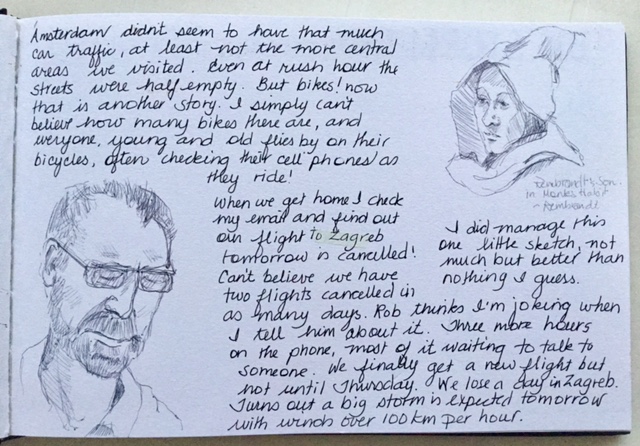 Amsterdam didn't seem to have that much
car traffic, at least not the more central
areas we visited. Even at rush hour the
streets were half empty. But bikes! now
that is another story. I simply can't
believe how many bikes there are, and
everyone, young and old flies by on their
bicycles, often checking their cell phones as
they ride!
When we get home I check
my email and find out
our flight to Zagreb
tomorrow is cancelled!
Can't believe we have
two flights cancelled in
as many days. Rob thinks I'm joking when
I tell him about it. Three more hours
on the phone, most of it waiting to talk to
someone. We finally get a new flight but
not until Thursday. We lose a day in Zagreb.
Turns out a big storm is expected tomorrow
with winds over 100 km per hour.
Rembrandt's Son
in Monks Habit
~ Rembrandt
I did manage this
one little sketch, not
much but better than
nothing I guess.